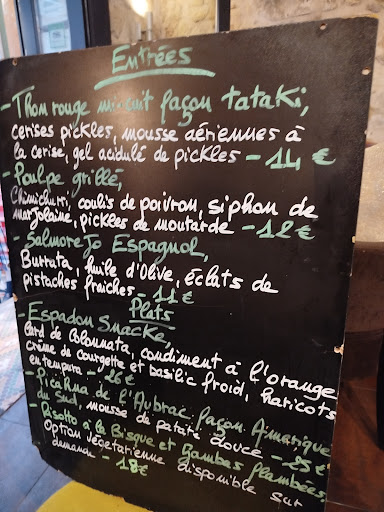 Entrées
- Thon rouge mi-cuit façon tataki,
cerises pickles, mousse aériennes à
la cerise, gel acidulé de pickles - 14 €
- Poulpe grillé,
Chimichurri, coulis de poivron, siphon de
marjolaine, pickles de moutarde - 12 €
- SalmoreJo Espagnol,
Burrata, huile d'Olive, éclats de
pistaches fraiches - 11 €
Plats
- Espadon Snacké,
Lard de Colonnata, condiment à l'orange
crème de courgette et basilic froid, haricots
en tempura - 26 €
- Picanha de l'Aubrac façon Amérique
du Sud, mousse de patate douce - 25 €
- Risotto à la Bisque et Gambas flambées
Option végétarienne disponible sur
demande - 18 €